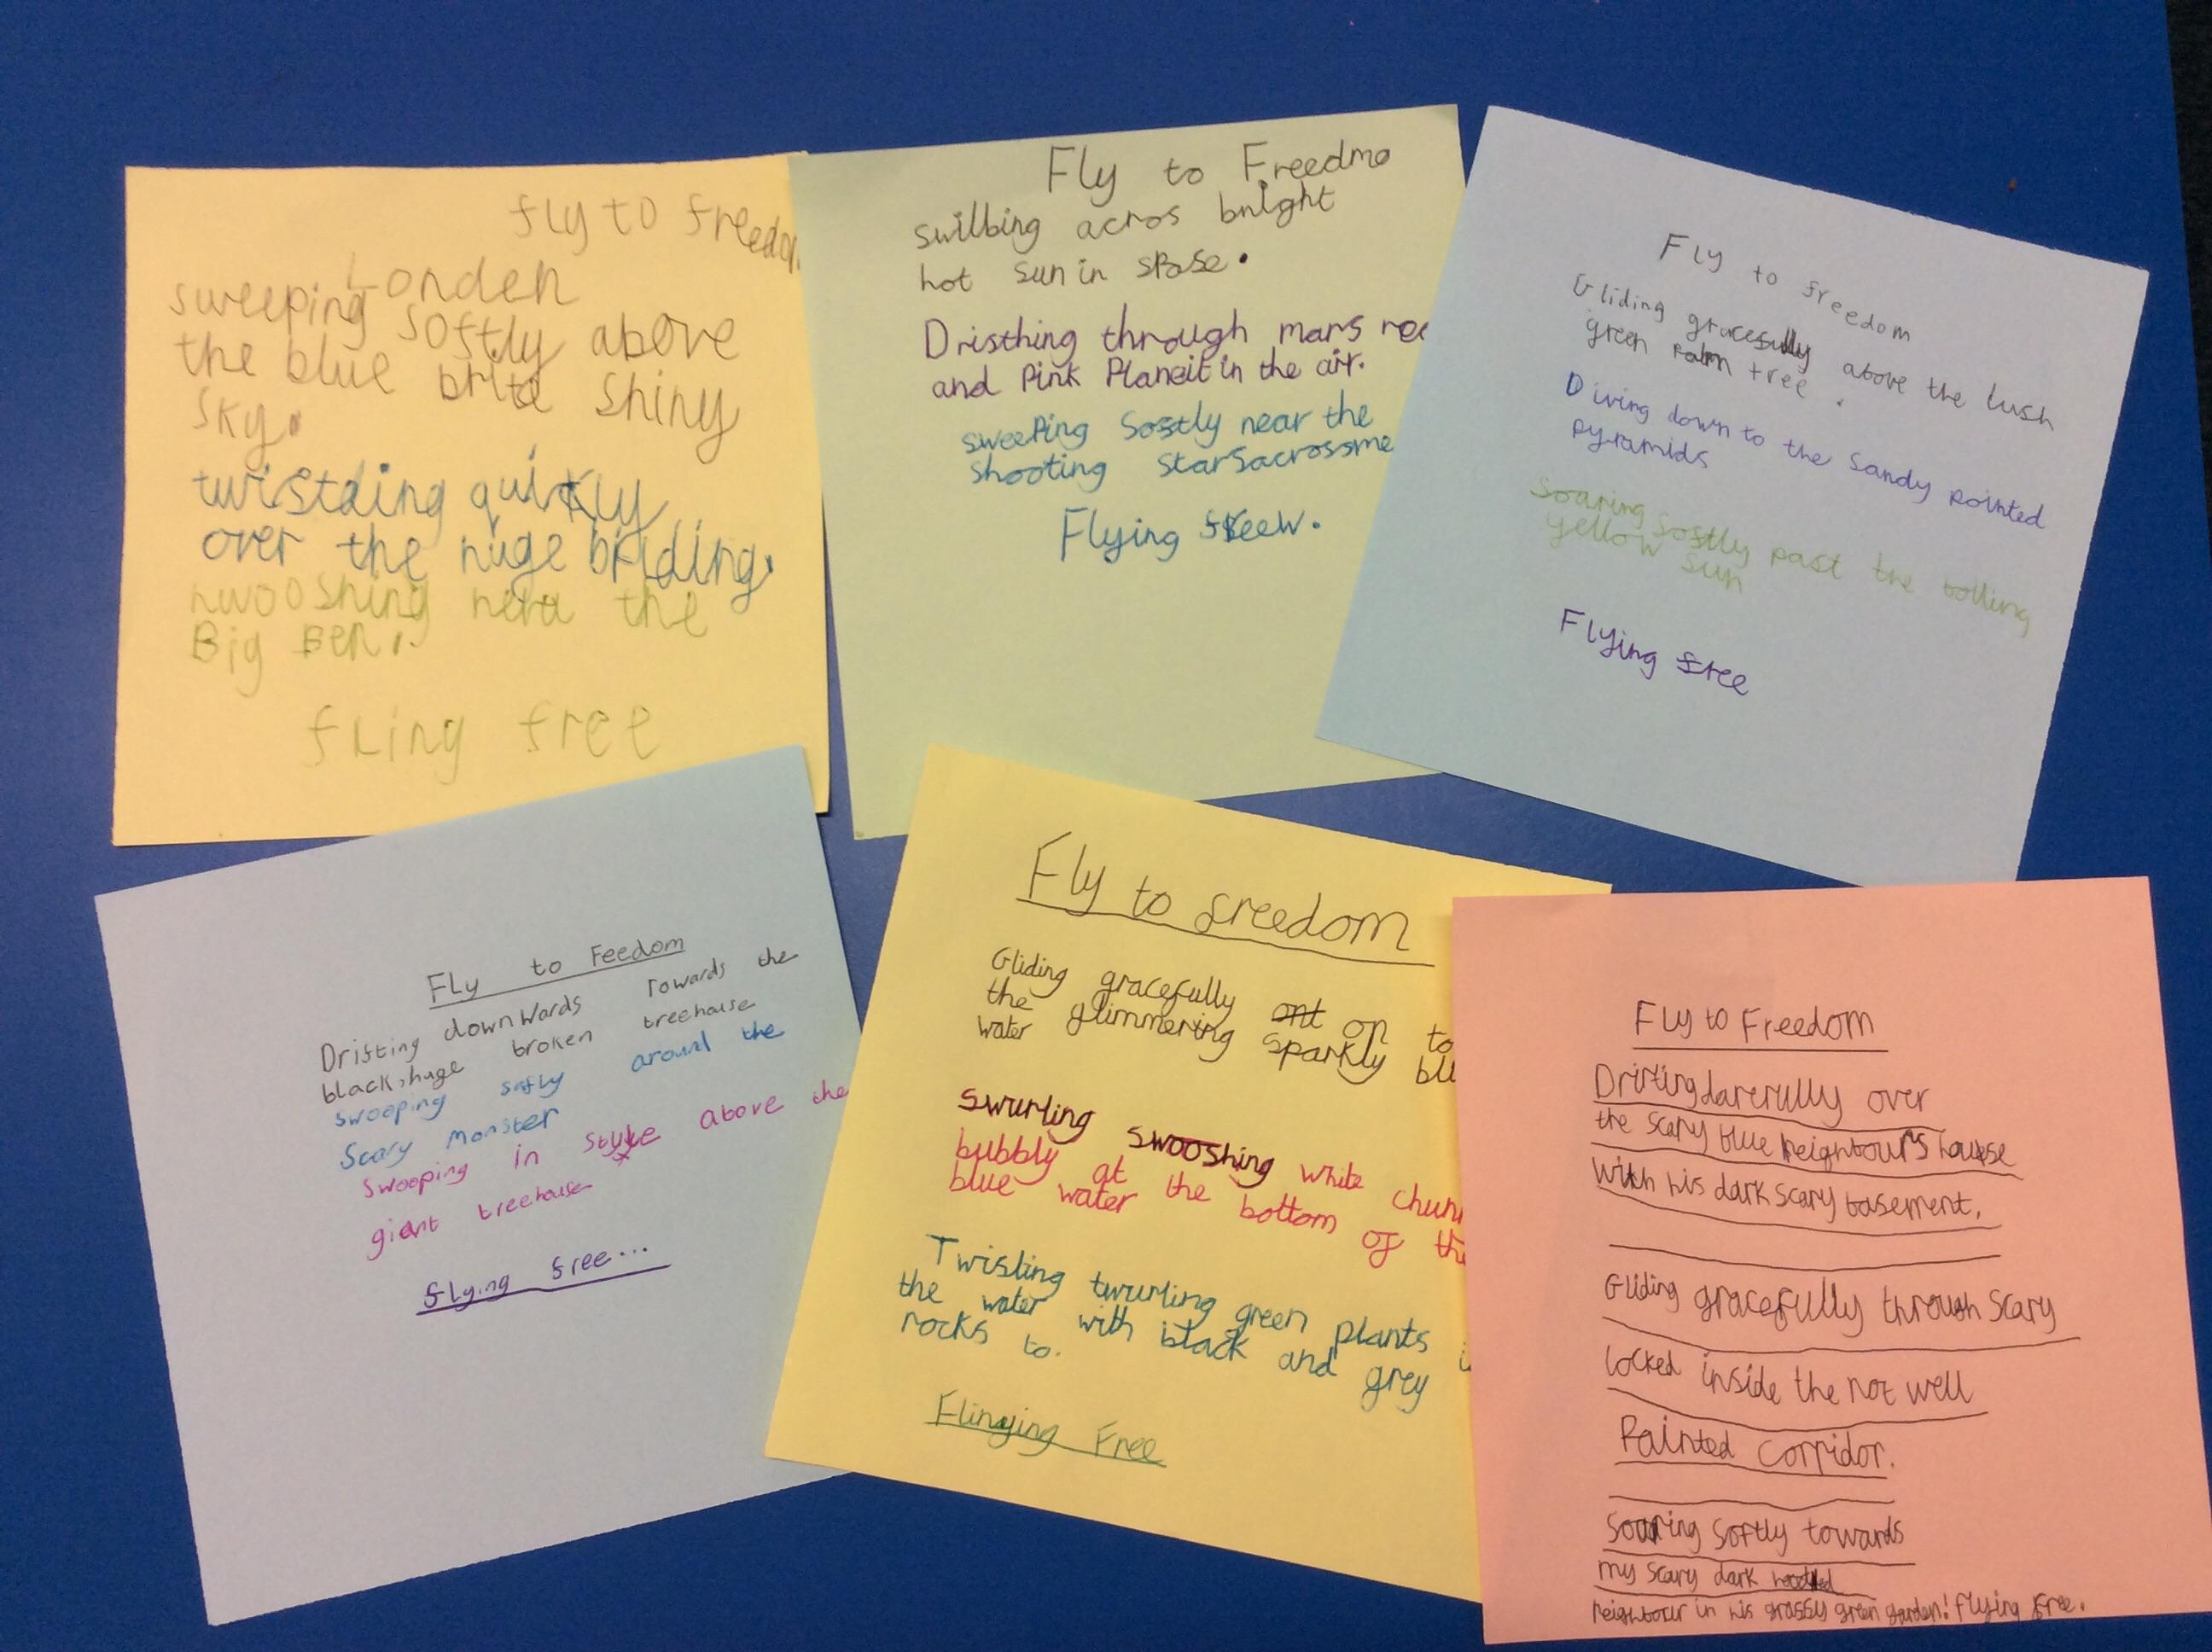 fly to freedom
Londen
sweeping softly above
the blue brite shiny
sky.
twistding quikly
over the huge briding.
swooshing nera the
Big Ben.
fling free
Fly to Freedmo
swilbing acros bright
hot sun in spase.
Dristhing through mars red
and Pink Planeit in the air.
sweeping sostly near the
shooting stars across me
Flying freew.
Fly to freedom
Gliding gracefully above the lush
green palm tree.
Diving down to the sandy pointed
pyramids
Soaring sostly past the bolling
yellow sun
Flying free
Fly to Feedom
Drifting downwards Towards the
black, huge broken treehouse
swooping softly around the
Scary monster
Swooping in style above the
giant treehouse
flying free...
Fly to freedom
Gliding gracefully ont on to
the glimmering sparkly blu
water
swurling swooshing white chun
bubbly at the bottom of the
blue water
Twisting twurling green plants i
the water with black and grey
rocks to.
Flinying Free
Fly to Freedom
Drifting darerully over
the scary blue neighbour's house
with his dark scary basement.
Gliding gracefully through scary
locked inside the not well
Painted corridor.
Soaring softly towards
my scary dark
neighbour in his grassy green garden! flying free.